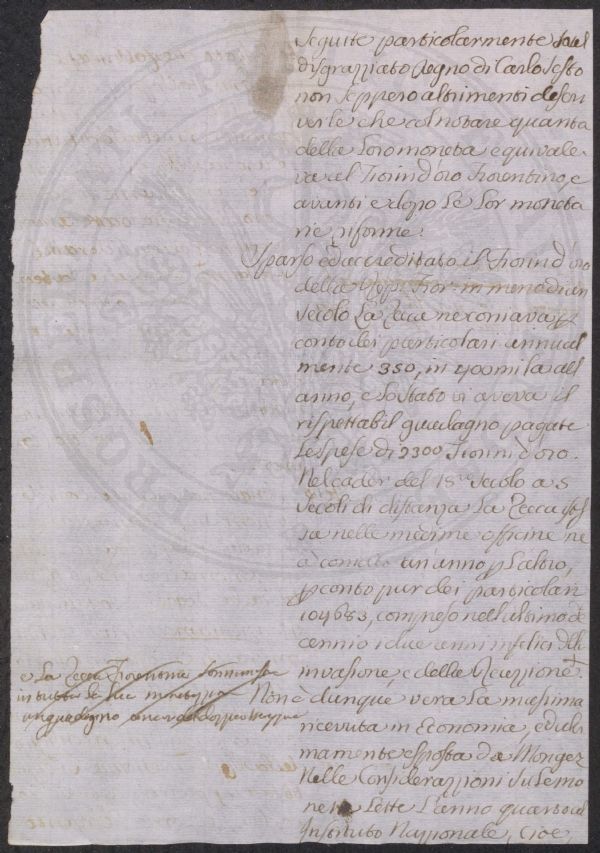 seguite particolarmente sul
disgraziato Regno di Carlo Sesto
non seppero altrimenti descri
verle che col notare quanta
della loro moneta equivale
va al Fiorin d'oro Fiorentino, e
avanti e dopo le lor moneta
rie riforme.
Sparso ed accreditato il Fiorin d'oro
della Fior: in meno di un
secolo la Zecca ne coniava p
conto dei particolari annual
mente 350, in 400 mila all
anno, e lo stato si aveva il
rispettabil guadagno pagate
le spese di 2300 Fiorini d'oro.
Nel cader del 18mo secolo a 5
secoli di distanza la Zecca stes
sa nelle medme officine ne
à coniato un'anno p l'altro,
p conto pur dei particolari
104683, compreso nell'ultimo de
cennio i due anni infelici dell
invasione, e della Reazione.
e La Zecca Fiorentina
in tutte le sue
un guadagno
Non è dunque vera la massima
ricevuta in Economia, ed ulti
mamente esposta da Mongez
nelle Considerazioni su le mo
nete lette l'anno quarto al
Instituto Nazzionale, cioè,